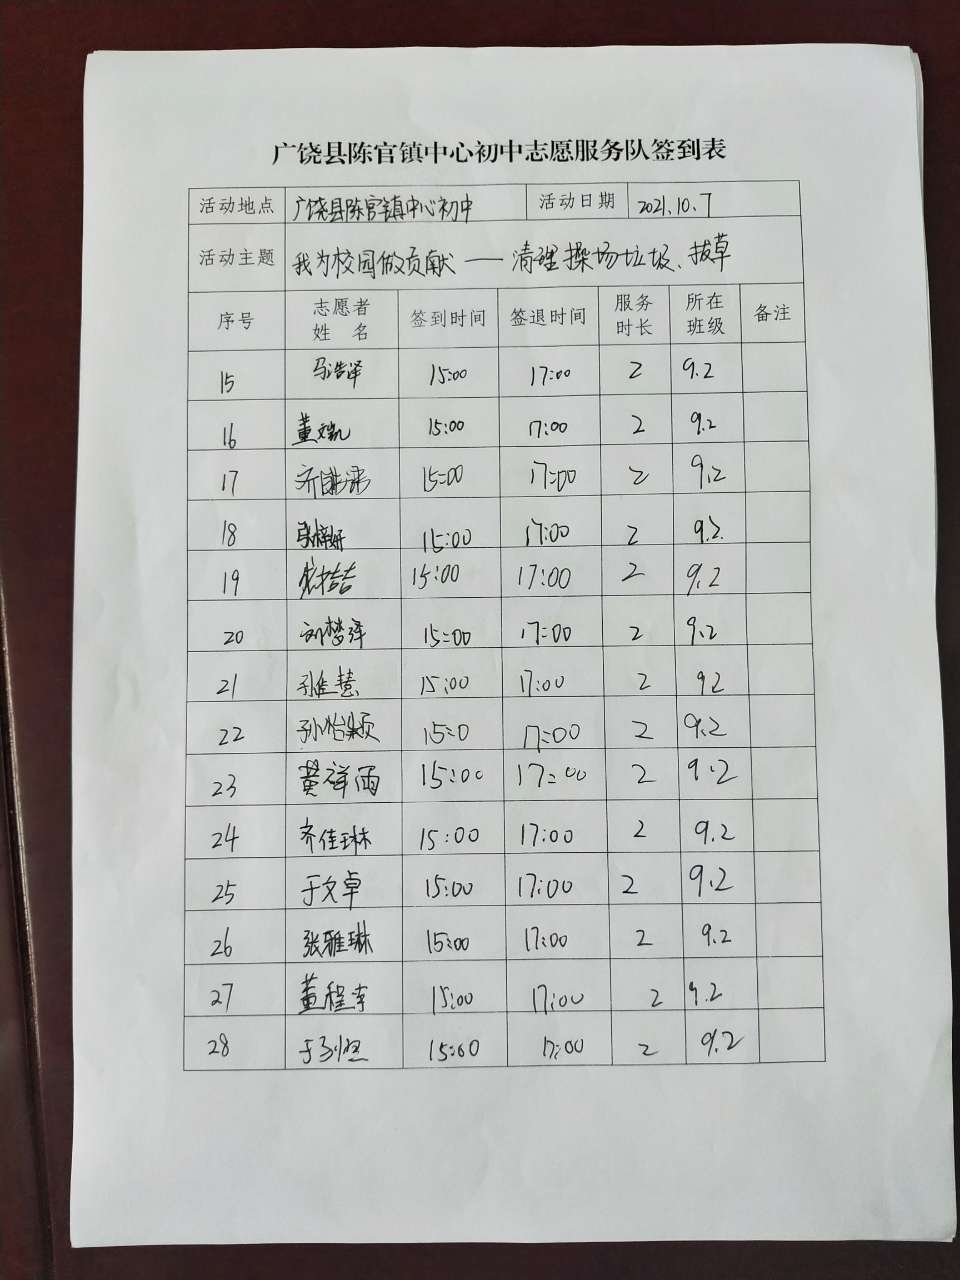 广饶县陈官镇中心初中志愿服务队签到表
活动地点 广饶县陈官镇中心初中 活动日期 2021.10.7
活动主题 我为校园做贡献——清理操场垃圾、拔草
序号 志愿者姓名 签到时间 签退时间 服务时长 所在班级 备注
15 马浩泽 15:00 17:00 2 9.2
16 董文凯 15:00 17:00 2 9.2
17 15:00 17:00 2 9.2
18 15:00 17:00 2 9.2
19 15:00 17:00 2 9.2
20 刘梦泽 15:00 17:00 2 9.2
21 孙佳慧 15:00 17:00 2 9.2
22 孙怡颖 15:0 17:00 2 9.2
23 黄祥雨 15:00 17:00 2 9.2
24 齐佳琳 15:00 17:00 2 9.2
25 于文卓 15:00 17:00 2 9.2
26 张雅琳 15:00 17:00 2 9.2
27 董程李 15:00 17:00 2 9.2
28 15:00 17:00 2 9.2